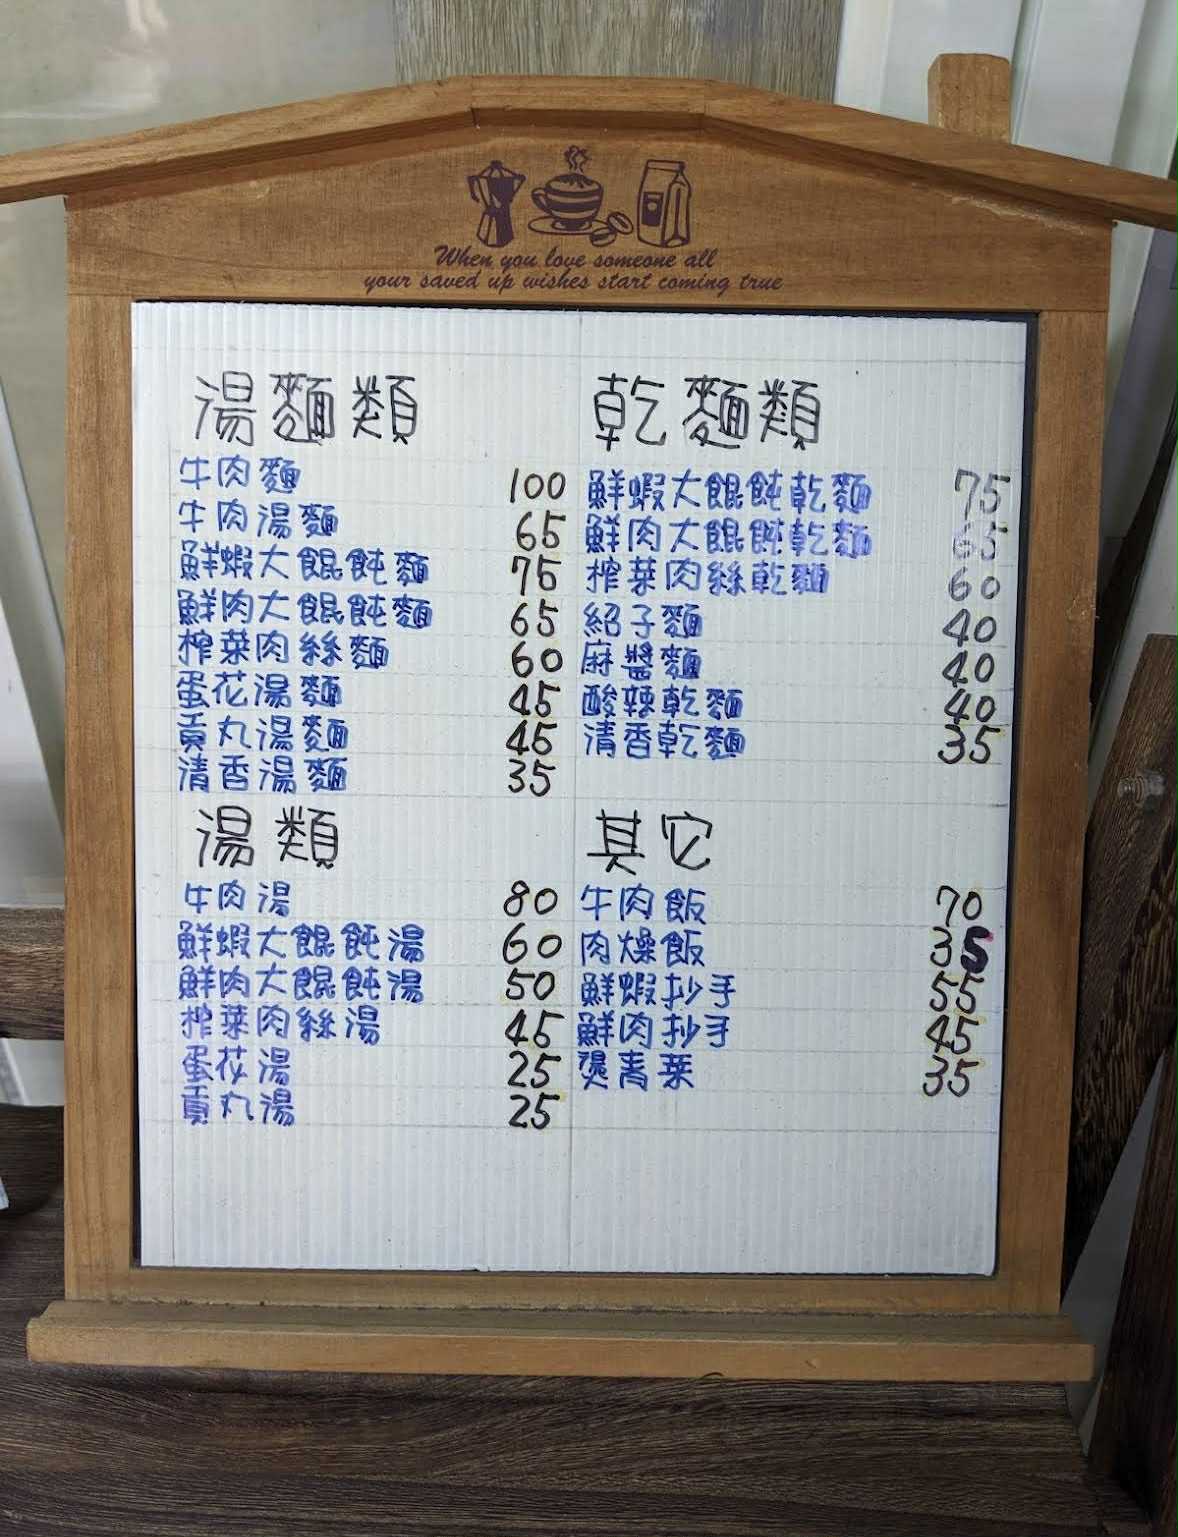 When you love someone all
your saved up wishes start coming true
湯麵類
牛肉麵 100
牛肉湯麵 65
鮮蝦大餛飩麵 75
鮮肉大餛飩麵 65
榨菜肉絲麵 60
蛋花湯麵 45
貢丸湯麵 45
清香湯麵 35
湯類
牛肉湯 80
鮮蝦大餛飩湯 60
鮮肉大餛飩湯 50
榨菜肉絲湯 45
蛋花湯 25
貢丸湯 25
乾麵類
鮮蝦大餛飩乾麵 75
鮮肉大餛飩乾麵 65
榨菜肉絲乾麵 60
紹子麵 40
麻醬麵 40
酸辣乾麵 40
清香乾麵 35
其它
牛肉飯 70
肉燥飯 35
鮮蝦抄手 55
鮮肉抄手 45
燙青菜 35